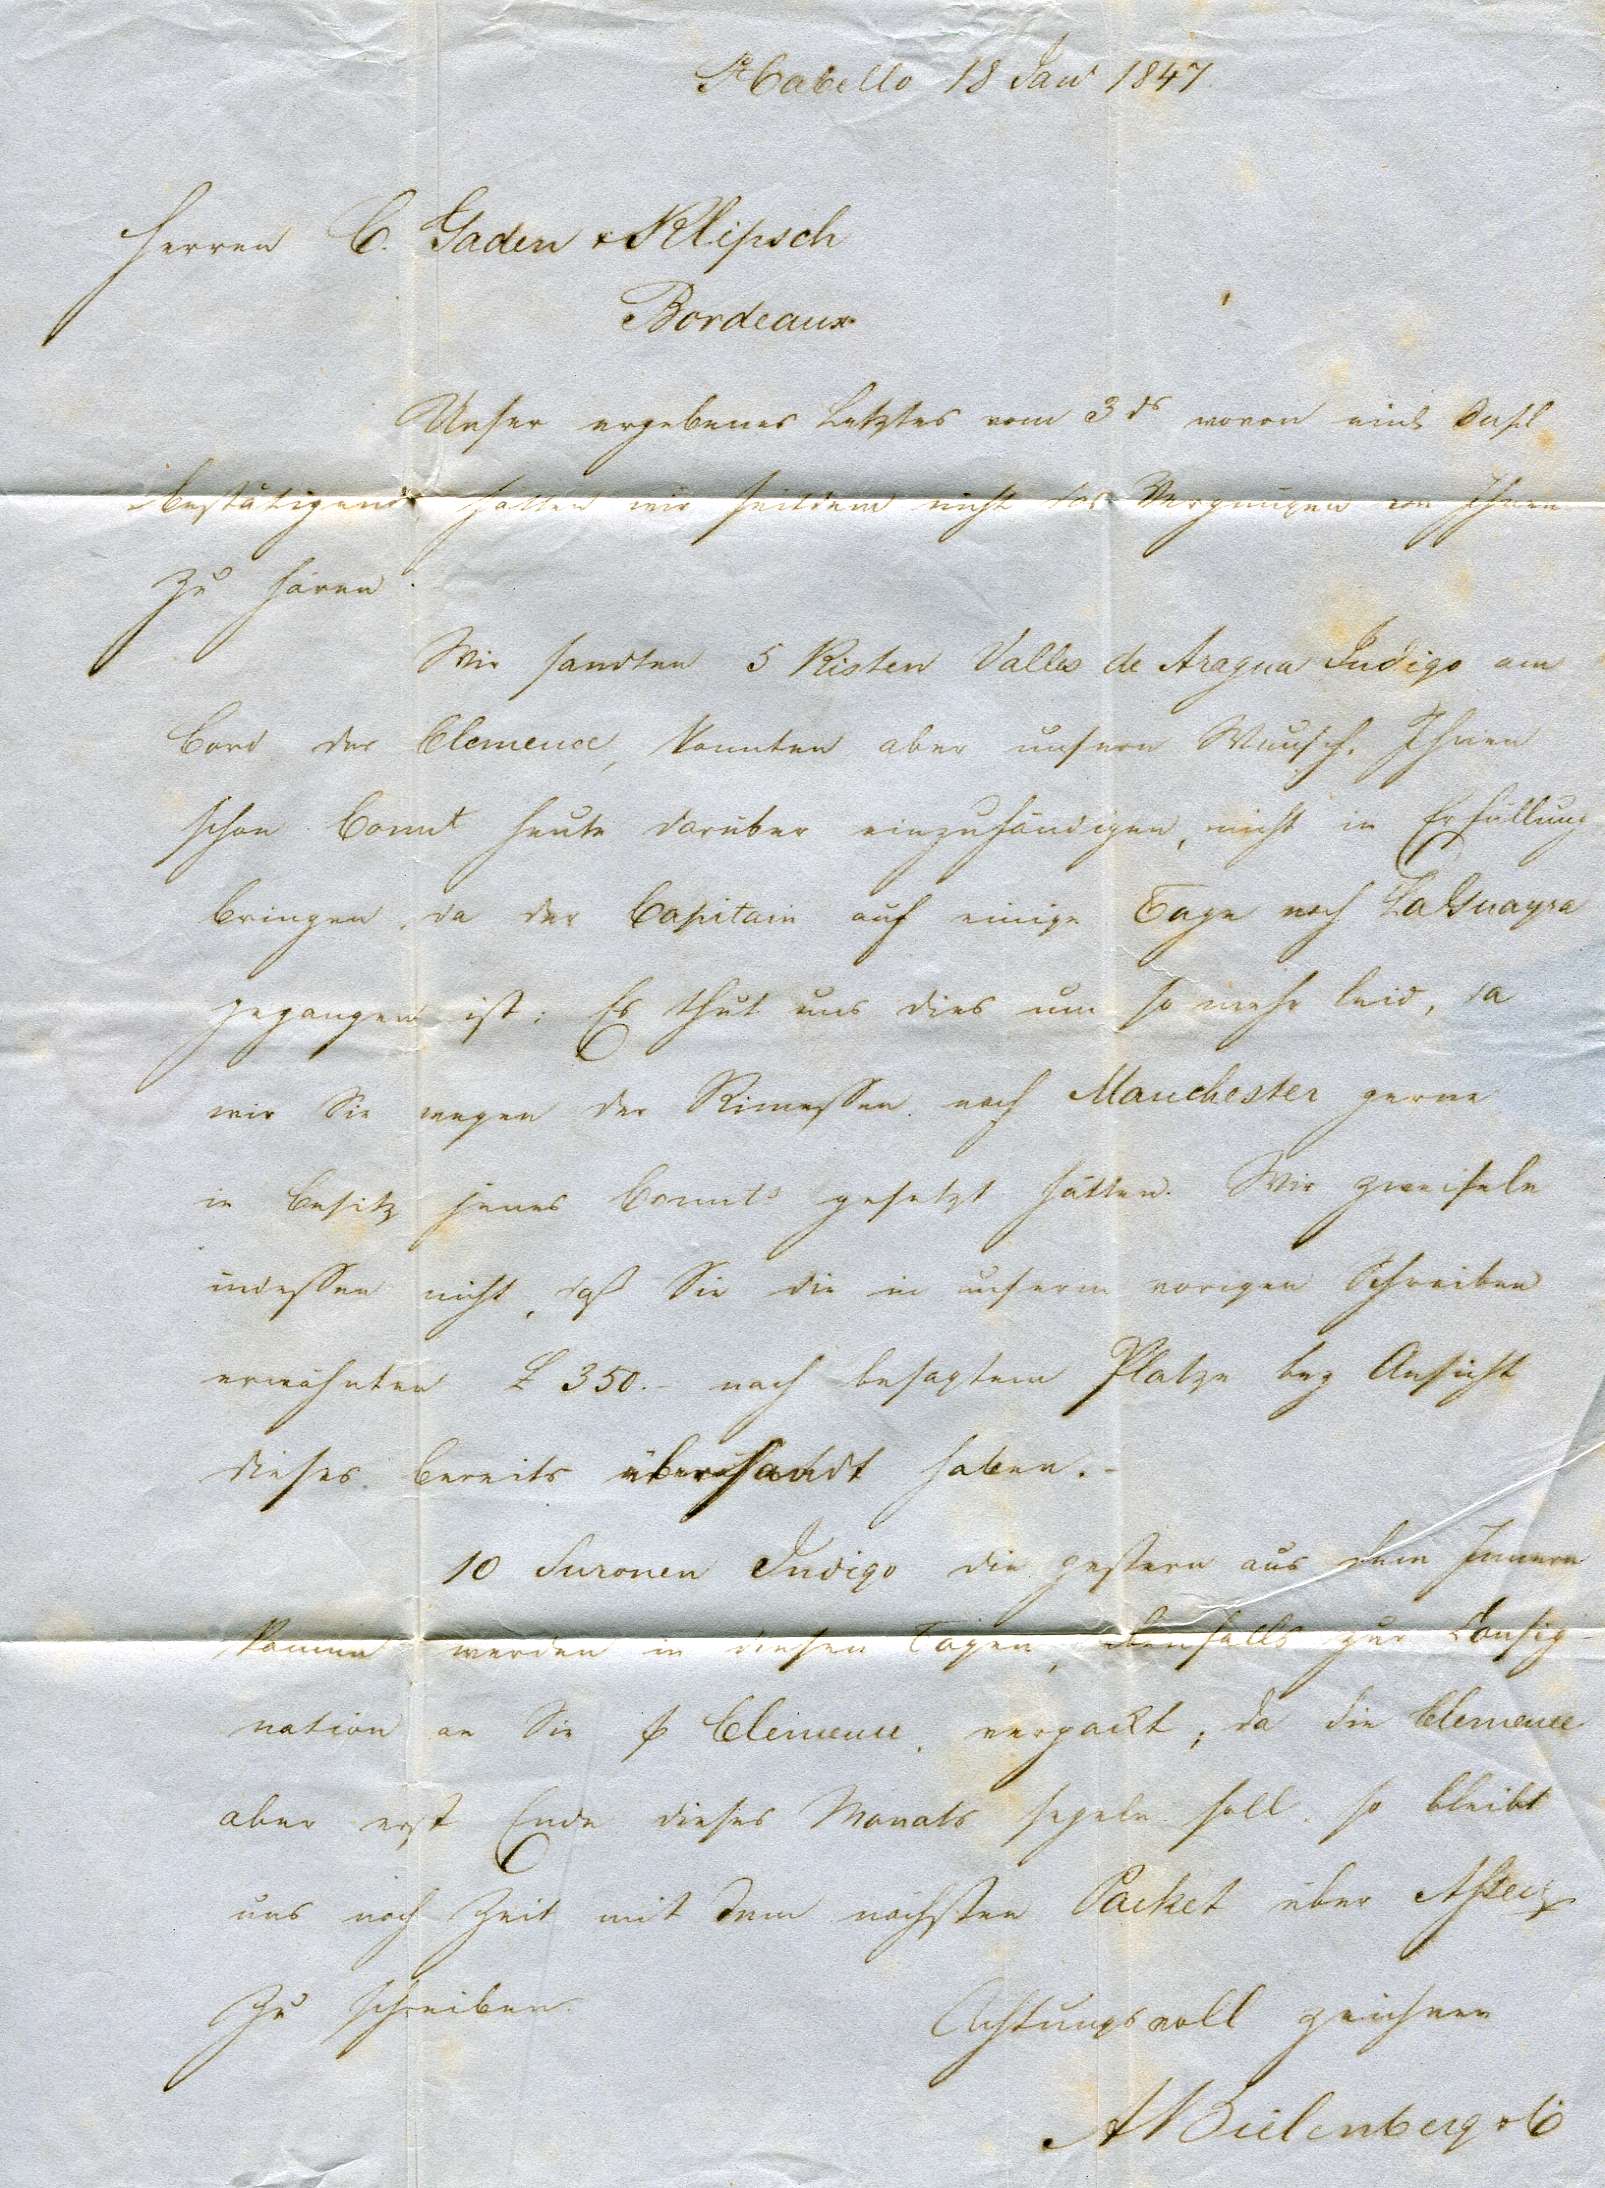 Pto Cabello 18 Jan 1847.
Herren C. Gaden & Klipsch
Bordeaux
Unser ergebenes Letztes vom 3 ds wovon einl. Dupl.
bestätigend hatten wir seitdem nicht das Vergnügen von Ihnen
zu hören.
Wir sandten 5 Kisten Valles de Aragua Indigo am
Bord der Clemence, konnten aber unsern Wunsch, Ihnen
schon Connt heute darüber einzuhändigen, nicht in Erfüllung
bringen, da der Capitain auf einige Tage nach LaGuayra
gegangen ist: Es thut uns dies um so mehr leid, da
wir Sie wegen der Rimessen nach Manchester gerne
in Besitz jenes Connts gesetzt hätten. Wir zweifeln
indessen nicht, daß Sie die in unserm vorigen Schreiben
erwähnten £ 350.- nach besagtem Platze bey Ansicht
dieses bereits übersandt haben.-
10 Suronen Indigo die gestern aus dem Innern
kamen werden in diesen Tagen, ebenfalls zur Consig-
nation an Sie p Clemence, verpackt; da die Clemence
aber erst Ende dieses Monats segeln soll, so bleibt
uns noch Zeit mit dem nächsten Packet über
zu schreiben.
Achtungsvoll zeichnen
A Bielenberg & C